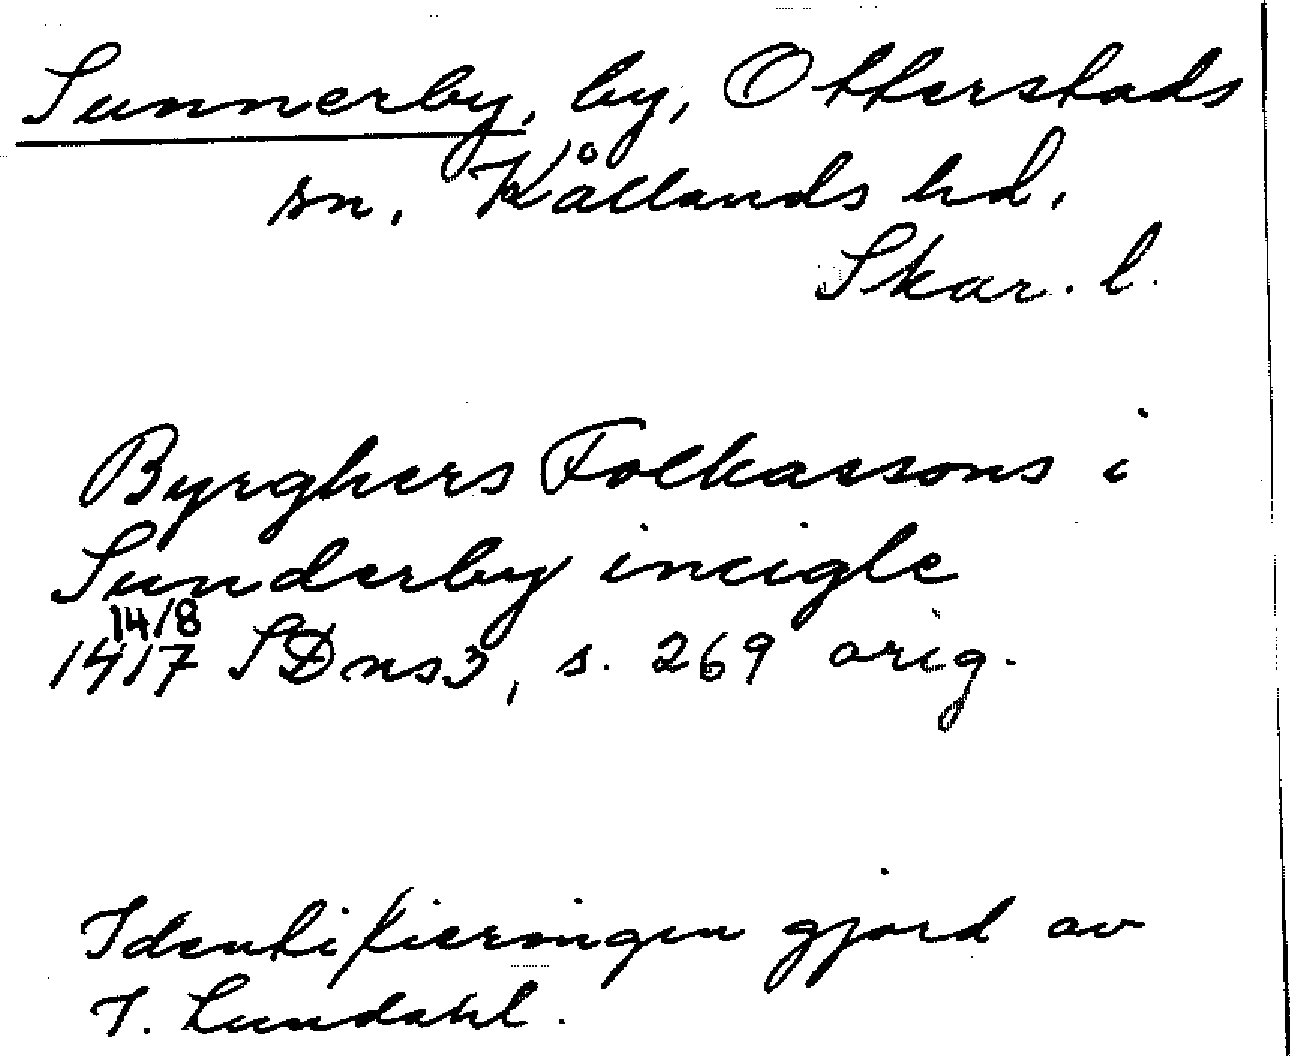 Sunnerby, by, Otterstads
sn. Kållands hd.
Skar. l.
Byrghers Folkassons i
Sunderby incigle
14/8
1417 SDns3, s. 269 orig.
Identifieringen gjord av
I. Lundahl.